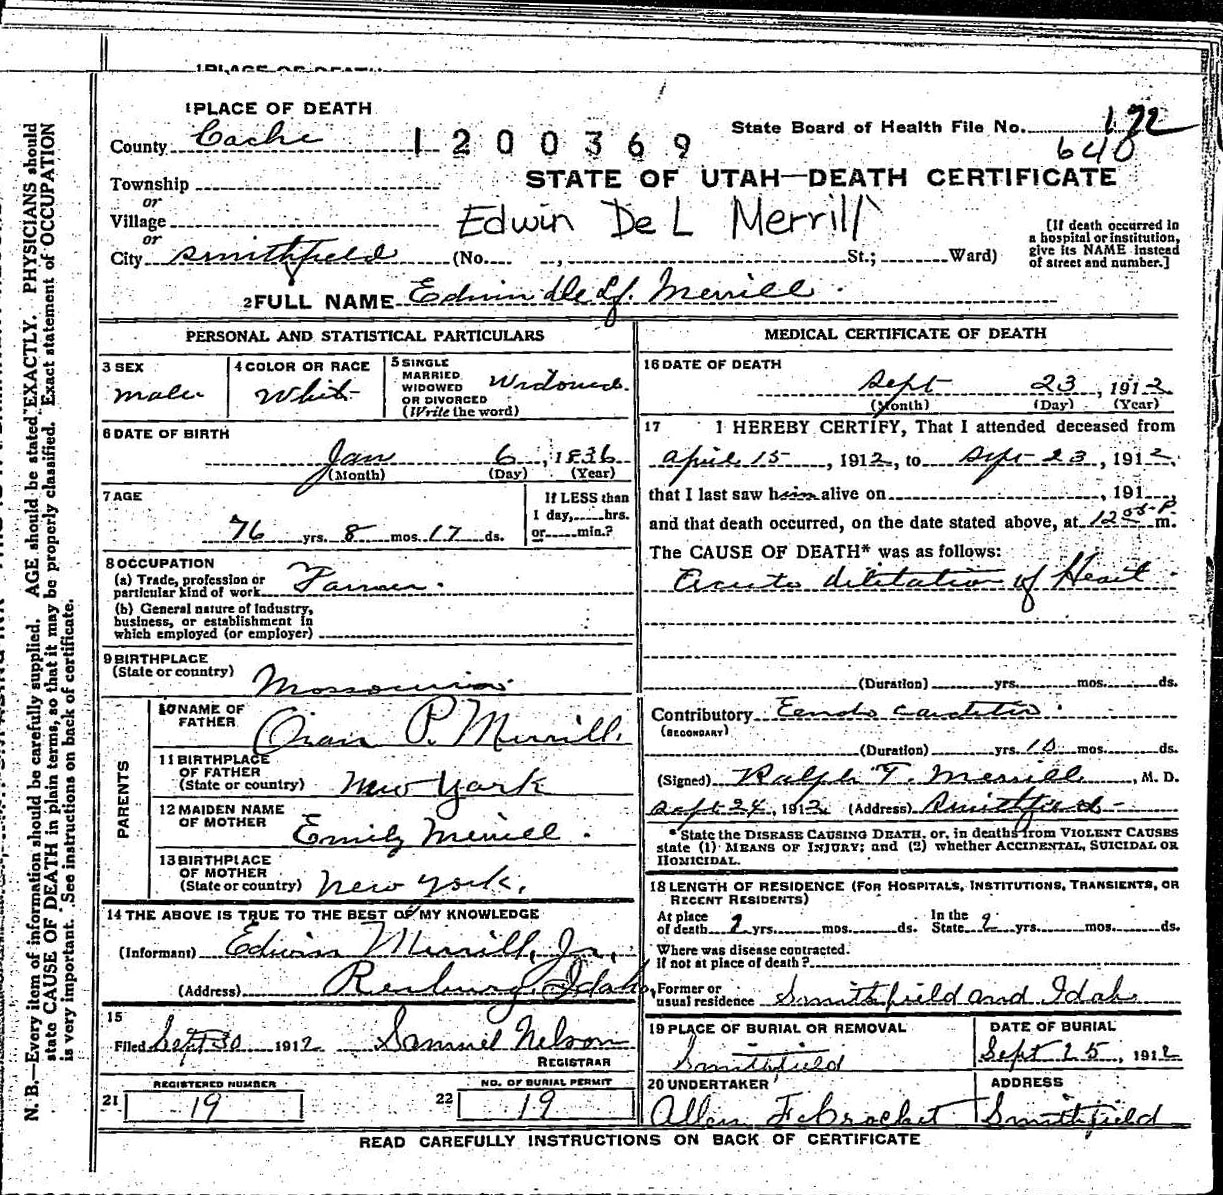 1 PLACE OF DEATH
County Cache 1200369 State Board of Health File No. 172
640
Township
STATE OF UTAH—DEATH CERTIFICATE
or
Village Edwin De L Merrill
or
City Smithfield (No. , St.; Ward)
[If death occurred in
a hospital or institution,
give its NAME instead
of street and number.]
2 FULL NAME Edwin De Merrill
PERSONAL AND STATISTICAL PARTICULARS
3 SEX
male
4 COLOR OR RACE
White
5 SINGLE
MARRIED
WIDOWED
OR DIVORCED
(Write the word)
Widowed
6 DATE OF BIRTH
Jan 6, 1836
(Month) (Day) (Year)
7 AGE
76 yrs. 8 mos. 17 ds.
If LESS than
1 day, hrs.
or min.?
8 OCCUPATION
(a) Trade, profession or
particular kind of work Farmer.
(b) General nature of industry,
business, or establishment in
which employed (or employer)
9 BIRTHPLACE
(State or country)
PARENTS
10 NAME OF
FATHER
P. Merrill.
11 BIRTHPLACE
OF FATHER
(State or country) New York
12 MAIDEN NAME
OF MOTHER Emily Merrill.
13 BIRTHPLACE
OF MOTHER
(State or country) New York.
14 THE ABOVE IS TRUE TO THE BEST OF MY KNOWLEDGE
(Informant) Edwin Merrill, Jr.,
(Address) Rexburg, Idaho,
15
Filed Sept 30 1912 Samuel Nelson
REGISTRAR
REGISTERED NUMBER
21 19
NO. OF BURIAL PERMIT
22 19
MEDICAL CERTIFICATE OF DEATH
16 DATE OF DEATH
Sept 23, 1912
(Month) (Day) (Year)
17 I HEREBY CERTIFY, That I attended deceased from
April 15, 1912, to Sept 23, 1912,
that I last saw him alive on , 191
and that death occurred, on the date stated above, at 12 05 P m.
The CAUSE OF DEATH* was as follows:
Acute dilitation of Heart
(Duration) yrs. mos. ds.
Contributory Endo carditis.
(SECONDARY)
(Duration) yrs. 10 mos. ds.
(Signed) Ralph T. Merrill, M. D.
Sept 24, 1912 (Address) Smithfield
*State the DISEASE CAUSING DEATH, or, in deaths from VIOLENT CAUSES
state (1) MEANS OF INJURY; and (2) whether ACCIDENTAL, SUICIDAL OR
HOMICIDAL.
18 LENGTH OF RESIDENCE (FOR HOSPITALS, INSTITUTIONS, TRANSIENTS, OR
RECENT RESIDENTS)
At place
of death yrs. mos. ds.
In the
State yrs. mos. ds.
Where was disease contracted.
if not at place of death?
Former or
usual residence Smithfield and Idaho
19 PLACE OF BURIAL OR REMOVAL
Smithfield
DATE OF BURIAL
Sept 25, 1912
20 UNDERTAKER
Allen
ADDRESS
Smithfield
READ CAREFULLY INSTRUCTIONS ON BACK OF CERTIFICATE
N. B.—Every item of information should be carefully supplied. AGE should be stated EXACTLY. PHYSICIANS should
state CAUSE OF DEATH in plain terms, so that it may be properly classified. Exact statement of OCCUPATION
is very important. See instructions on back of certificate.